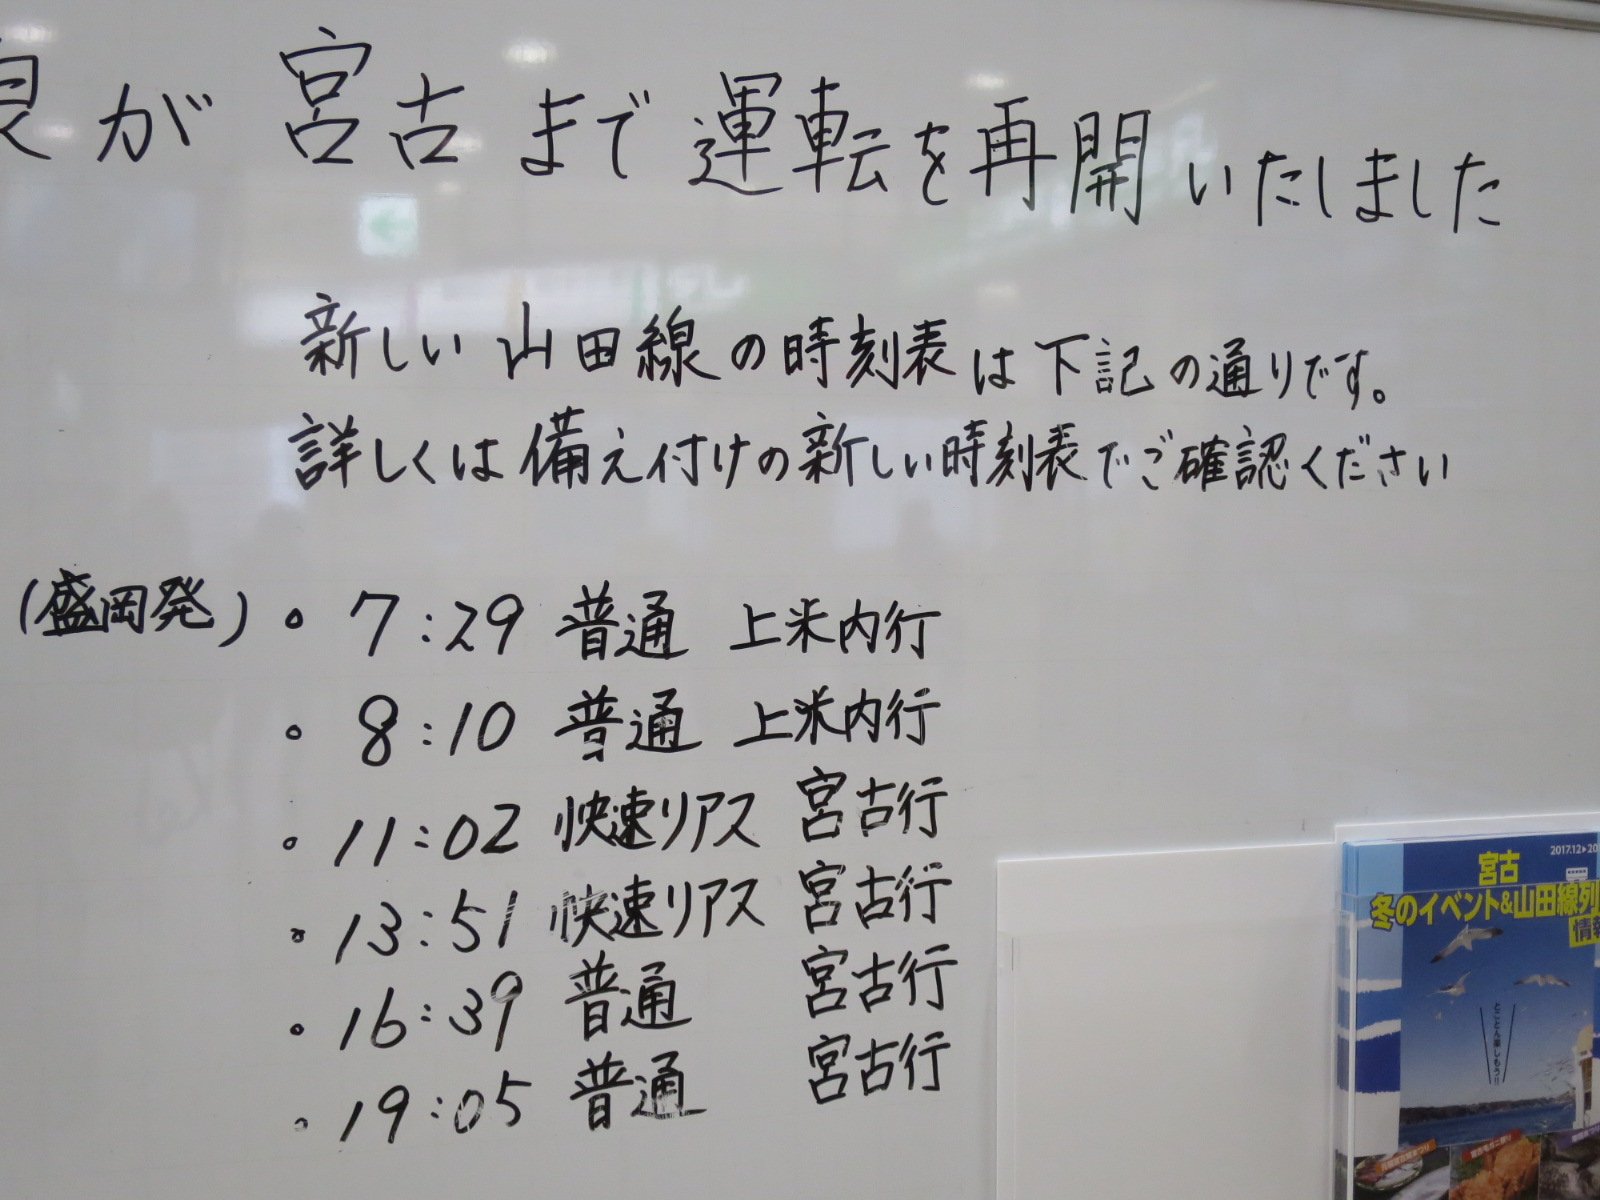 が宮古まで運転を再開いたしました
新しい山田線の時刻表は下記の通りです。
詳しくは備え付けの新しい時刻表でご確認ください
(盛岡発)。7:29 普通 上米内行
。8:10 普通 上米内行
。11:02 快速リアス 宮古行
。13:51 快速リアス 宮古行
。16:39 普通 宮古行
。19:05 普通 宮古行
2017.12▶20
宮古
冬のイベント&山田線列
情報
とことん楽しもう!!